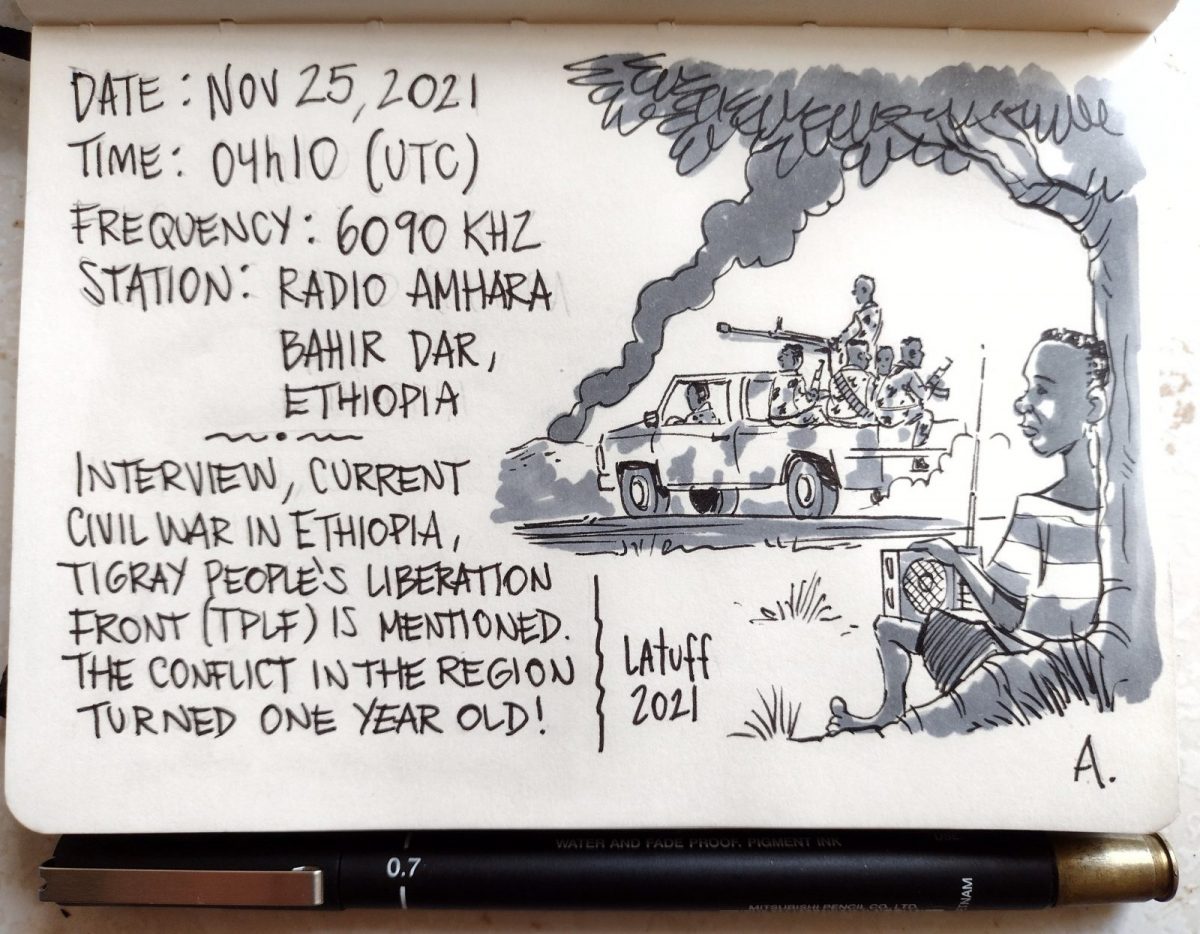 DATE: NOV 25, 2021
TIME: 04h10 (UTC)
FREQUENCY: 6090 KHZ
STATION: RADIO AMHARA
BAHIR DAR,
ETHIOPIA
INTERVIEW, CURRENT
CIVIL WAR IN ETHIOPIA,
TIGRAY PEOPLE'S LIBERATION
FRONT (TPLF) IS MENTIONED.
THE CONFLICT IN THE REGION
TURNED ONE YEAR OLD!
LATUFF
2021
A.
WATER AND FADE PROOF. PIGMENT INK
0.7
MITSUBISHI PENCIL CO., LTD.